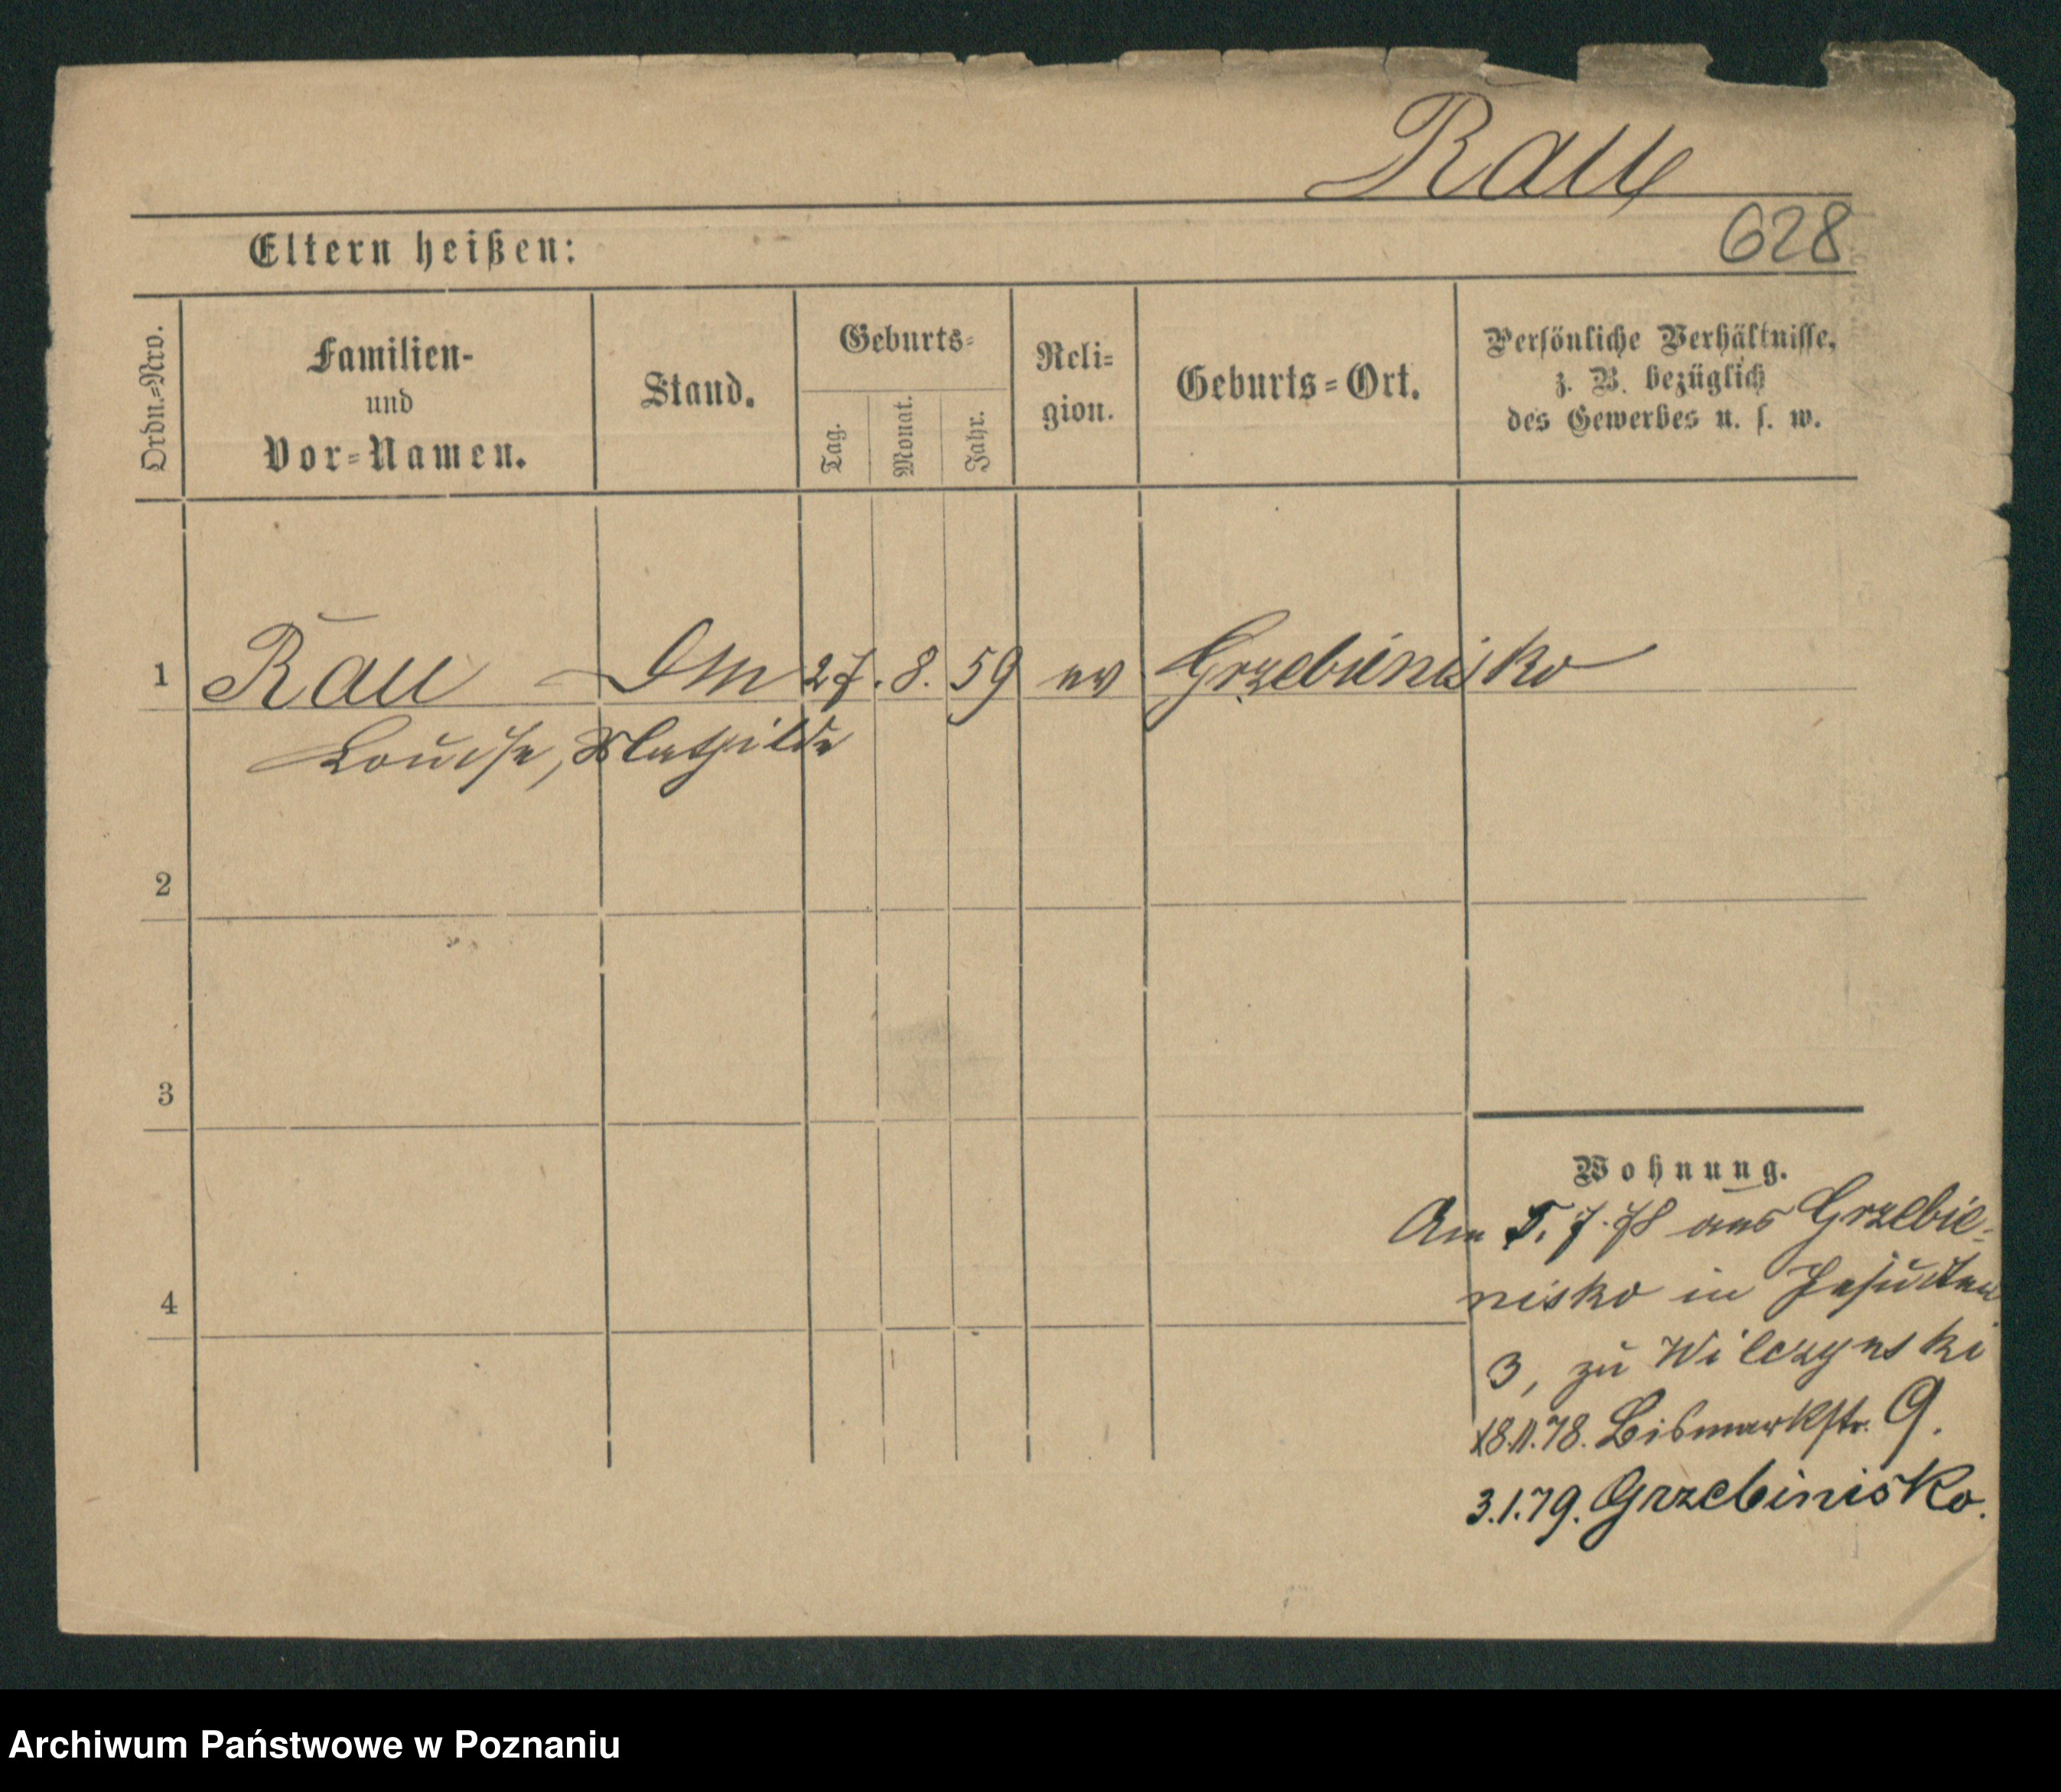 Rau
628
Eltern heißen:
Ordn.=Nro.
Familien-
und
Vor=Namen.
Stand.
Geburts=
Tag.
Monat.
Jahr.
Reli=
gion.
Geburts=Ort.
Persönliche Verhältnisse,
z. B. bezüglich
des Gewerbes u. s. w.
1 Rau 27. 8. 59 ev Grzebinisko
Louise, Mathilde
2
3
4
Wohnung.
Am 5. 7. 78 aus Grzebie-
nisko in Jesuiten
3, zu Wilczynski
18.11.78. Bismarkstr. 9.
3.1.79. Grzebinisko.
Archiwum Państwowe w Poznaniu